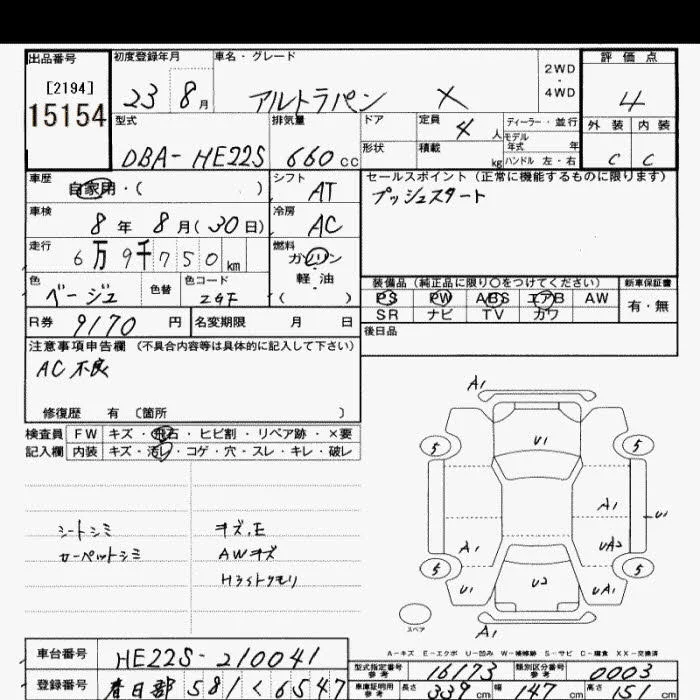 出品番号
[2194]
15154
初度登録年月
23 8月
車名・グレード
アルトラパン X
2WD
・
4WD
評価点
4
外装 内装
C C
型式
DBA-HE22S
排気量
660cc
ドア
形状
定員
4人
積載
kg
ディーラー・並行
モデル
年式 年
ハンドル 左・右
車歴
自家用・( )
シフト
AT
車検
8年 8月(30日)
冷房
AC
走行
6万9千750km
燃料
ガソリン
軽油
( )
色
ベージュ
色替
色コード
ZGF
R券
9170円
名変期限 月 日
セールスポイント(正常に機能するものに限ります)
プッシュスタート
装備品(純正品に限り○をつけてください)
PS PW ABS エアB AW
SR ナビ TV カワ
新車保証書
有・無
後日品
注意事項申告欄(不具合内容等は具体的に記入して下さい)
AC不良
修復歴 有 〔箇所 〕
検査員
記入欄
FW キズ・飛石・ヒビ割・リペア跡・×要
内装 キズ・汚レ・コゲ・穴・スレ・キレ・破レ
シートシミ
カーペットシミ
キズ.E
AWキズ
Hライトクモリ
A1
U1
5
5
A1
U1
A1
UA2
5
U1
U2
UA1
5
スペア
A1
A-キズ E-エクボ U-凹み W-補修跡 S-サビ C-腐食 XX-交換済
車台番号
HE22S-210041
登録番号
春日部 581 く 6547
型式指定番号
参考
16173
類別区分番号
参考
0003
車庫証明用
参考
長さ 339cm 幅 147cm 高さ 151cm